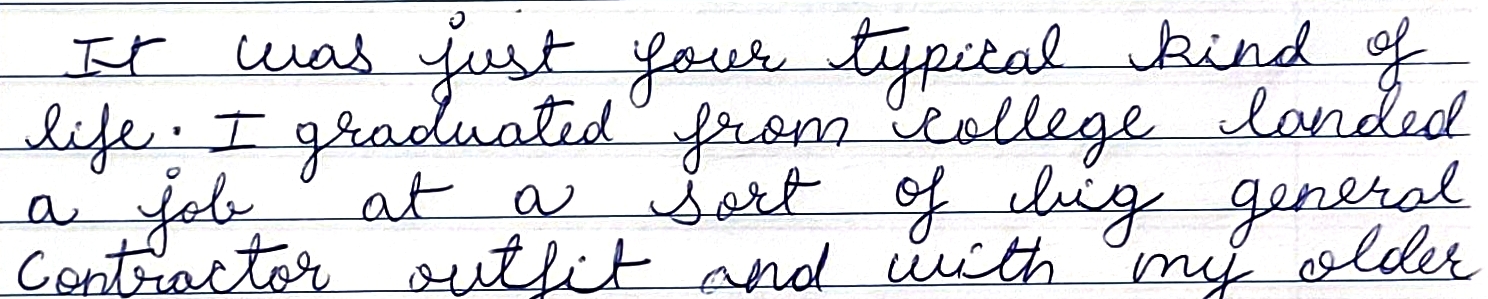 It was just your typical kind of
life. I graduated from college landed
a job at a sort of big general
contractor outfit and with my older